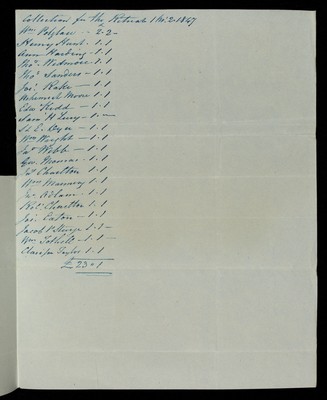 Collection for the Retreat 1 Mo: 2. 1847
Wm Polglase - 2-2-
Henry Hunt - 1-1
Ann Harding - 1-1
Thos. Wedmore 1-1
Thos Sanders - 1-1
Jos: Rake - 1-1
Moore 1-1
Edw Kidd - 1-1
Saml H Lury - 1-
S. E. Dyer - 1-1
Wm Wright - 1-1
Jas Webb - 1-1
Geo. Thomas - 1-1
Charlton 1-1
Wm Manney 1-1
1-1
Robt. Charlton 1-1
Jos: Eaton - 1-1
Jacob P Sturge 1-1-
Wm Tothill - 1-1-
Taylor 1-1
£ 23 - 1